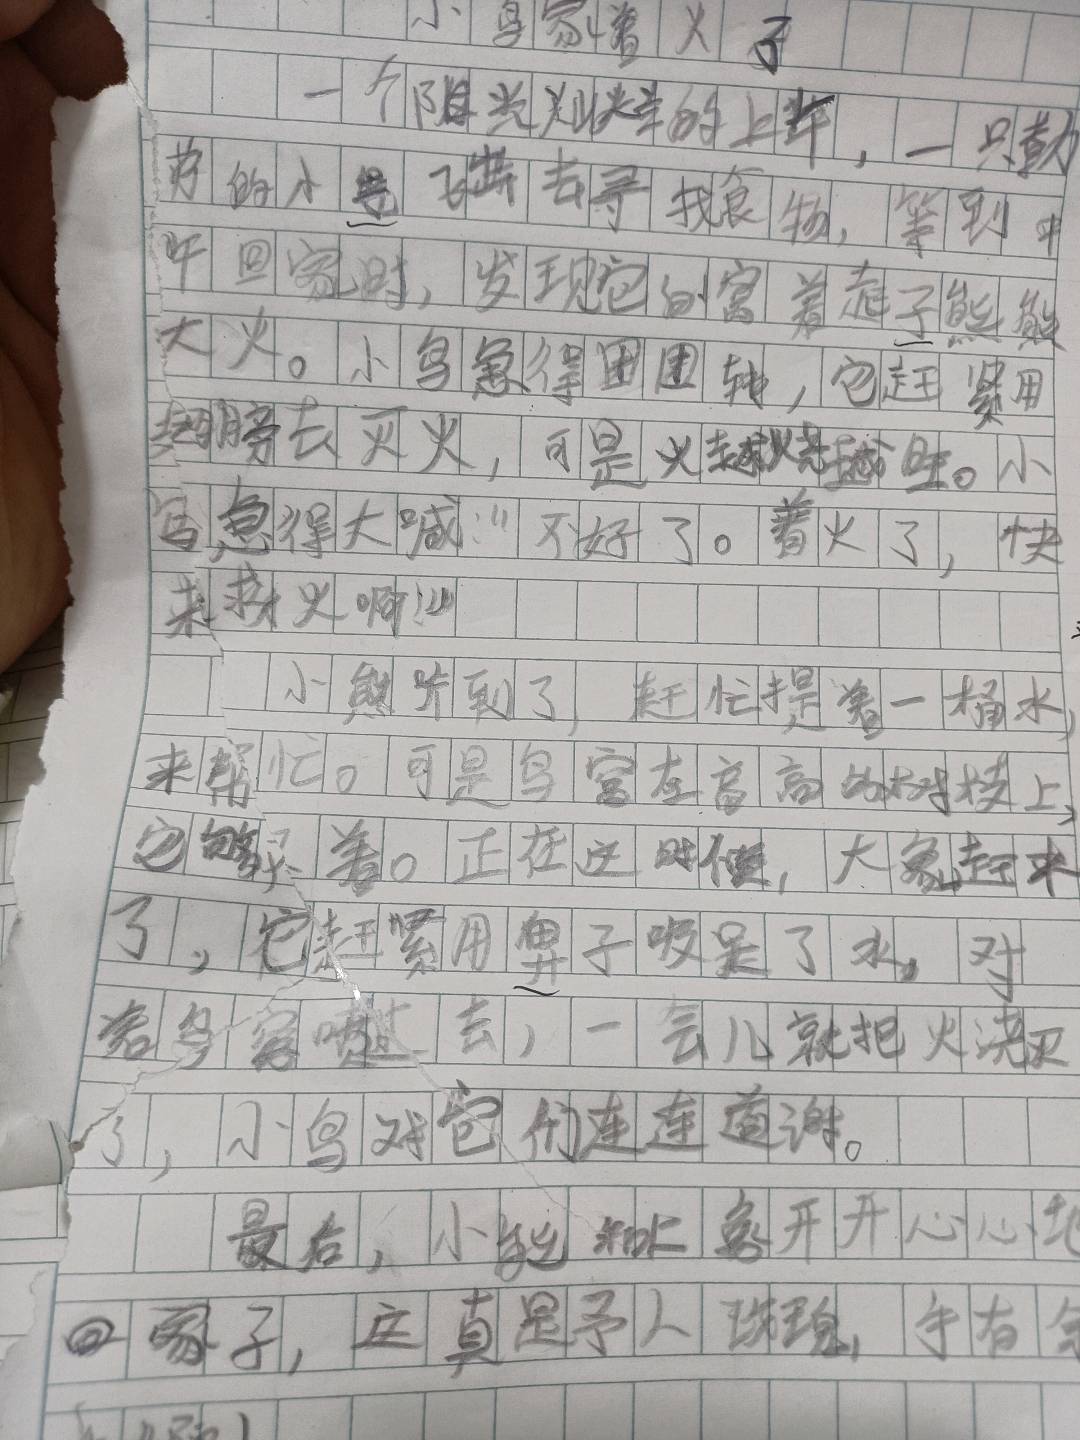 小鸟家着火了
一个阳光灿烂的上午，一只勤
劳的小鸟飞出去寻找食物，等到中
午回家时，发现它的窝着起了熊熊
大火。小鸟急得团团转，它赶紧用
翅膀去灭火，可是火越烧越旺。小
鸟急得大喊：“不好了。着火了，快
来救火啊！”
小熊听到了，赶忙提着一桶水，
来帮忙。可是鸟窝在高高的树枝上，
它够不着。正在这时候，大象赶来
了，它赶紧用鼻子吸足了水，对
着鸟窝喷过去，一会儿就把火浇灭
了，小鸟对它们连连道谢。
最后，小熊和大象开开心心地
回家了，这真是予人玫瑰，手有余